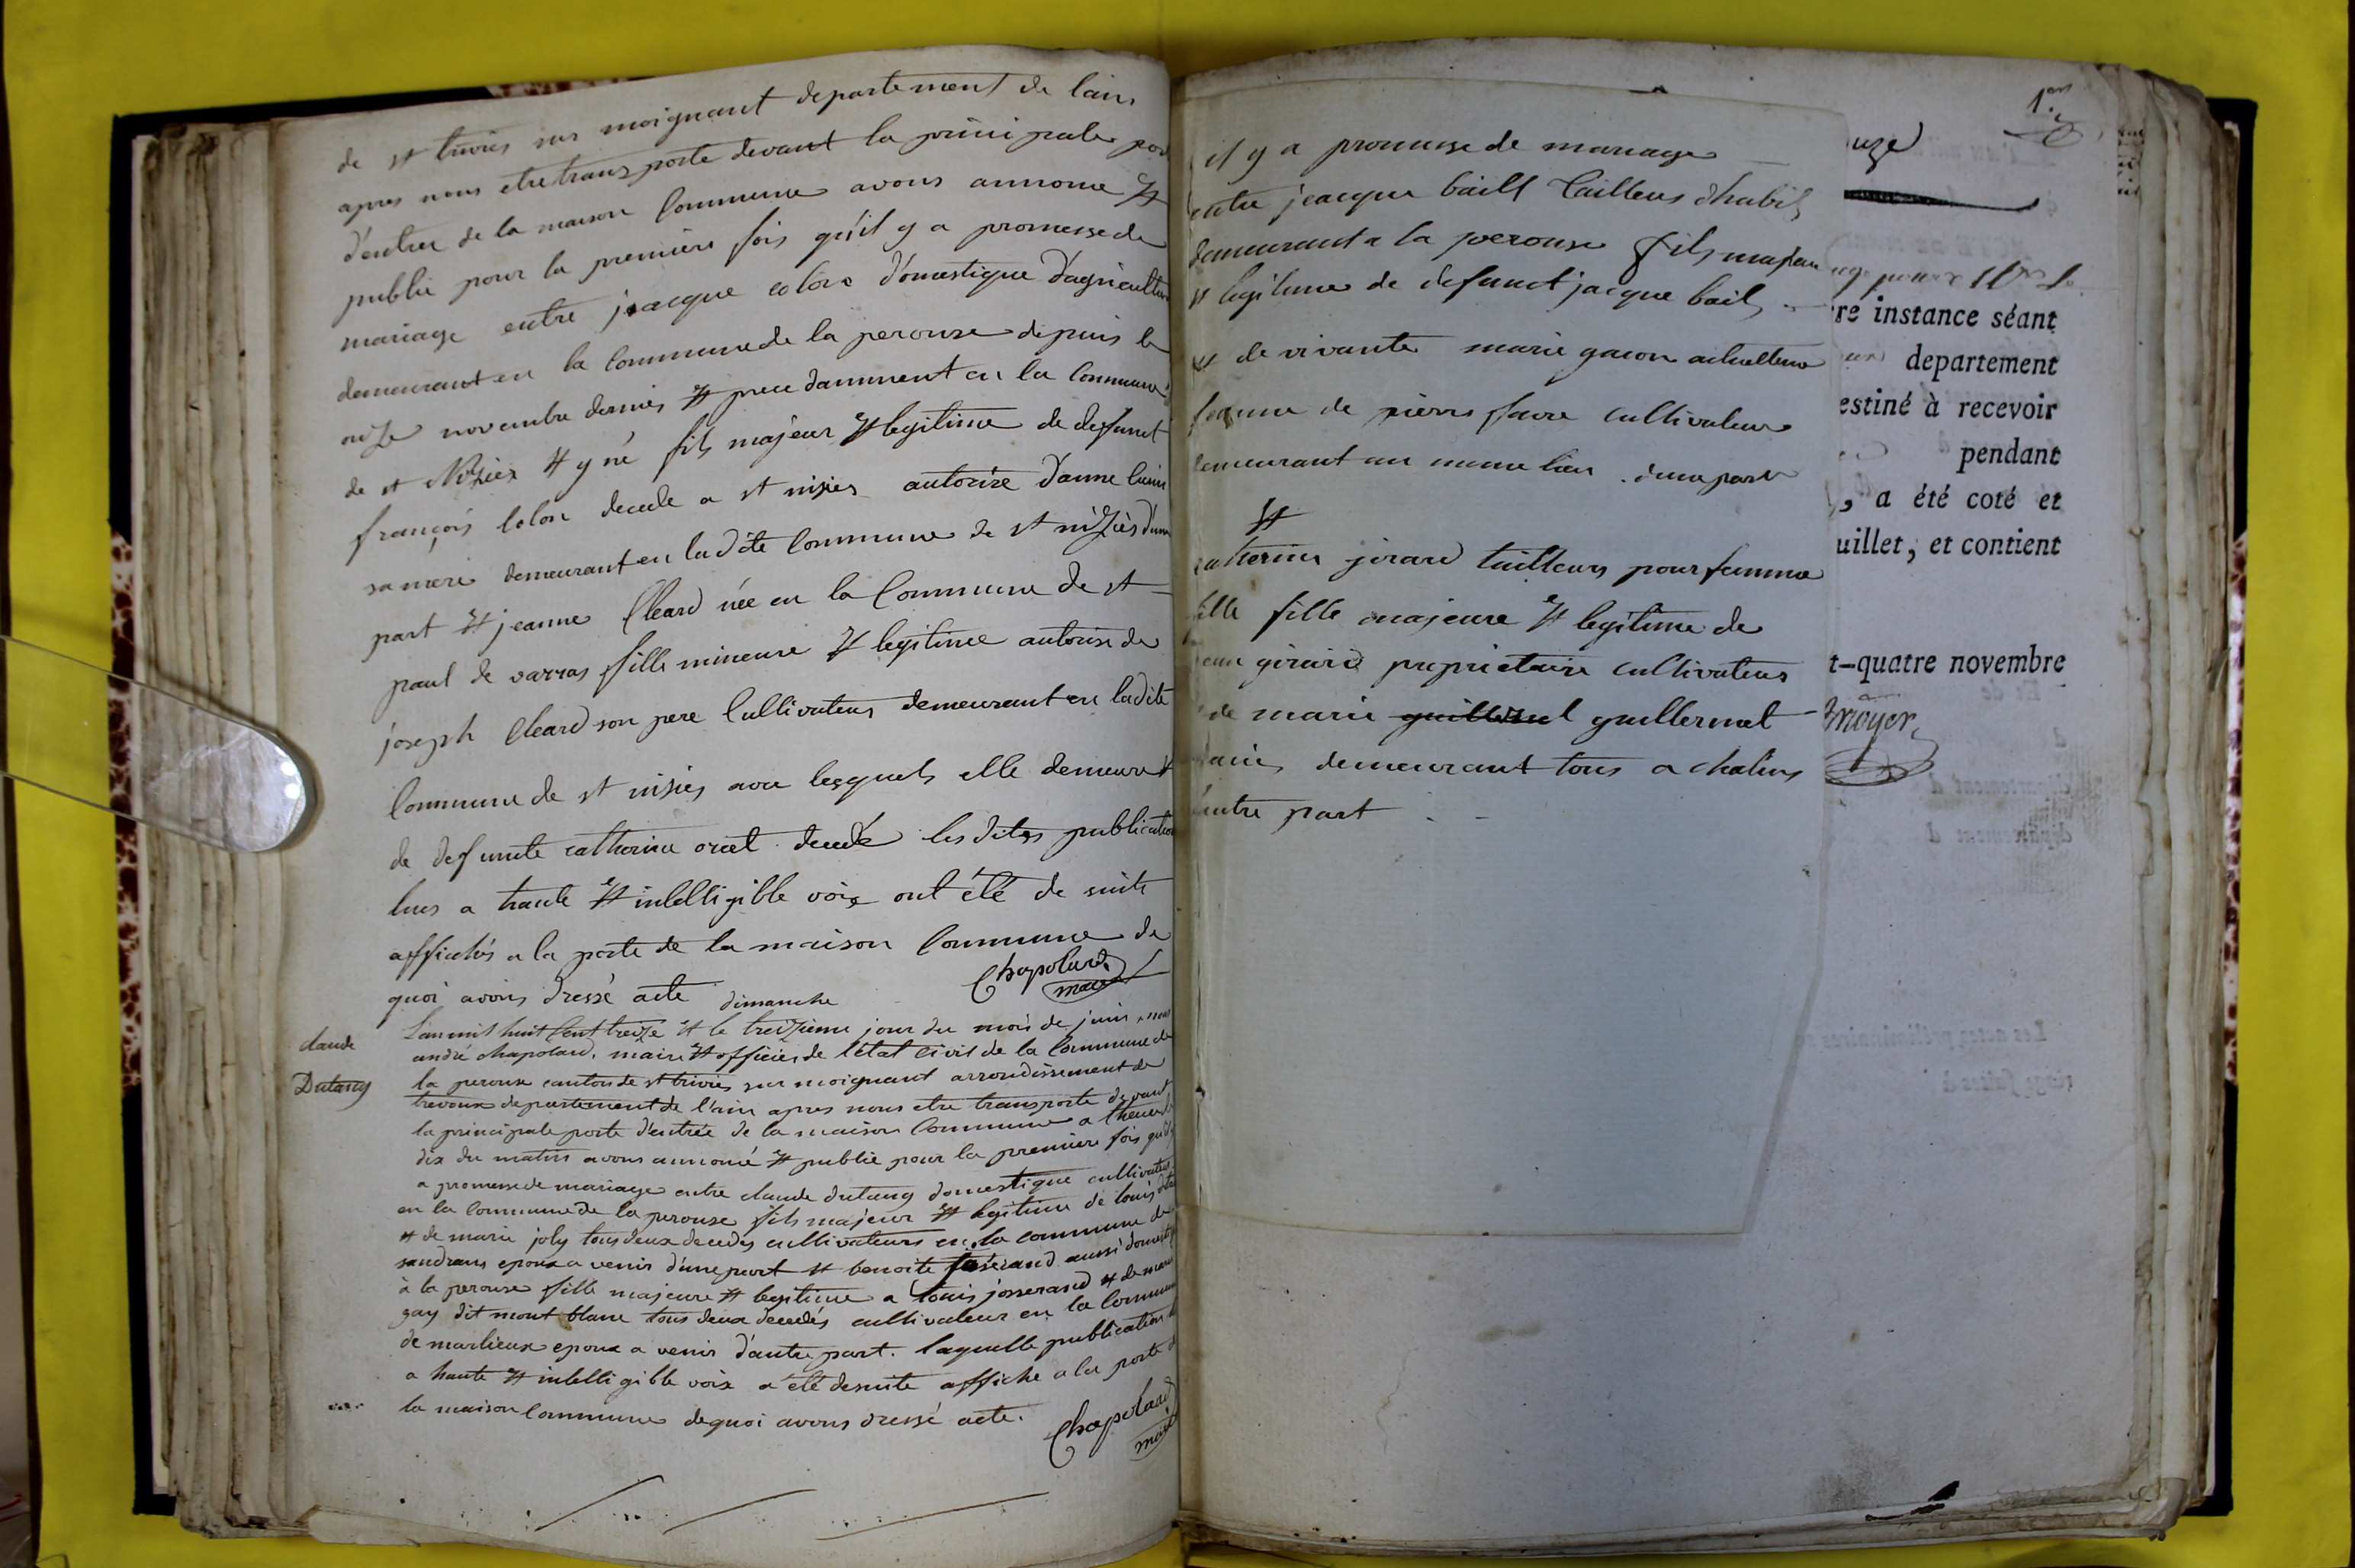 de st trivies sur moignant departement de lain
apres nous etre transporte devant la principale por
d'entrer de la maison Commune avons annonce et
publie pour la premiere fois qu'il y a promesse de
mariage entre jacque colon domestique d'agriculture
demeurant en la commune de la perouse depuis le
onze novembre dernies et precedamment en la Commune
de st Nizies et y né fils majeur et legitime de defunct
françois Colon decede a st nisies autorize d'anne
sa mere demeurant en la dite Commune de st niziès d'une
part et jeanne Cleard née en la Commune de st
paul de varras fille mineure et legitime autorise de
joseph Cleard son pere Cultivateur demeurant en la dite
Commune de st nisies avec lesquels elle demeure et
de defunte catherine decede les dites publication
lues a haute et intelligible voix ont été de suite
affichés a la porte de la maison Commune de
quoi avons dressé acte
Chapolard
maire
dimanche
claude
Dutang
L'an mil huit Cent treize et le treizieme jour du mois de juin nous
andré chapolard, maire et officier de l'état Civil de la Commune de
la perouse canton de st trivies sur moignant arrondissement de
trevoux departement de l'ain apres nous etre transporte devant
la principale porte d'entrée de la maison Commune a l'heure de
dix du matin avons annoncé et publie pour la premiere fois qu'il y
a promesse de mariage entre claude dutang domestique cultivateur
en la Commune de la perouse fils majeur et legitime de louis
et de marie joly tous deux decedes cultivateurs en la commune de
sandrans epoux a venir d'une part et benoite josserand aussi domestique
à la perouse fille majeure et legitime a louis josserand et de marie
gay dit mont blanc tous deux decedés cultivateur en la Commune
de marlieux epoux a venir d'autre part. laquelle publication
a haute et intelligible voix a été desuite affiche a la porte d
la maison Commune de quoi avons dressé acte.
Chapolard
maire
il y a promesse de mariage
entre jeacque baill tailleur d'habit
demeurant a la perouse fils majeur
et legitime de defunct jacque bail
et de vivante marie gacon actuelleme
femme de pierre favre cultivateur
demeurant au meme lieu d'une part
et
catherine jirard tailleurs pour femme
fille majeure et legitime de
jean girard proprietaire cultivateur
de marie guillermet guillermet
demeurant tous a chalins
autre part
1er
uze
re instance séant
departement
estiné à recevoir
pendant
, a été coté et
uillet, et contient
t-quatre novembre